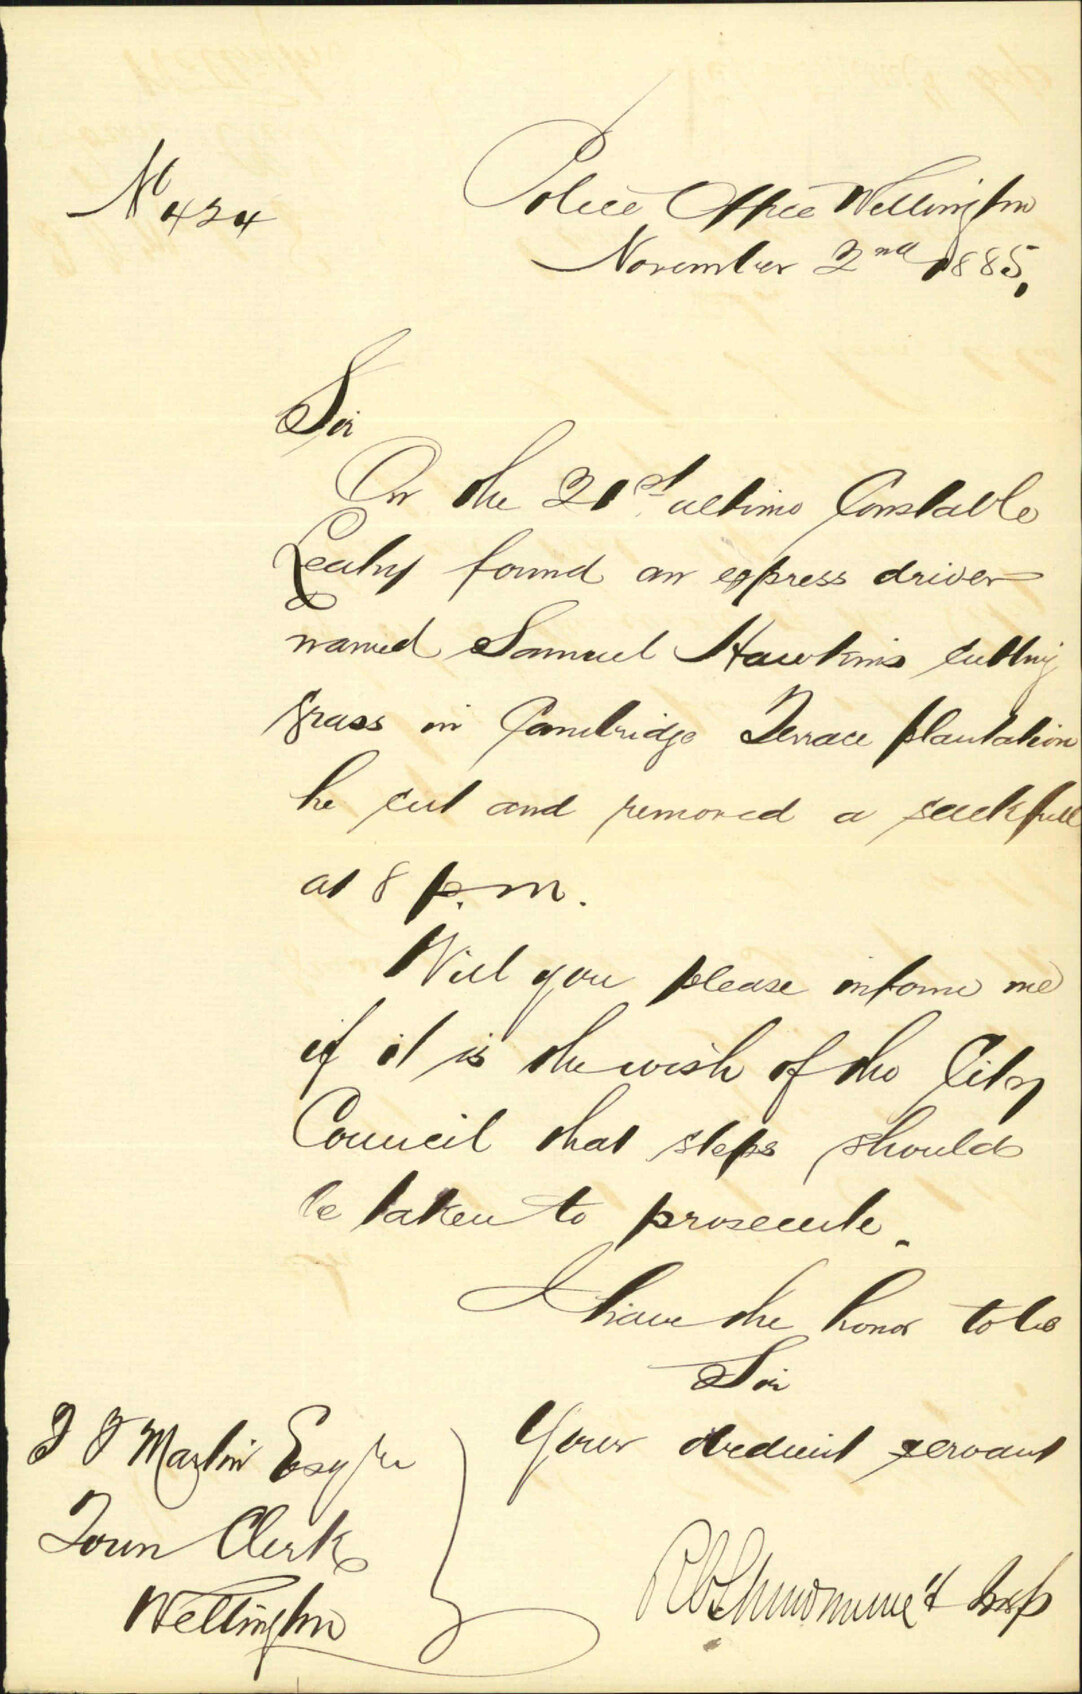 No 424
Police Office Wellington
November 2nd 1885.
Sir
On the 21st ultimo Constable
Leahy found an express driver
named Samuel Hawkins cutting
grass in Cambridge Terrace plantation
he cut and removed a sackfull
at 8 p.m.
Will you please inform me
if it is the wish of the City
Council that steps should
be taken to prosecute.
I have the honor to be
Sir
Your obedient servant
Insp
Martin Esqre
Town Clerk
Wellington